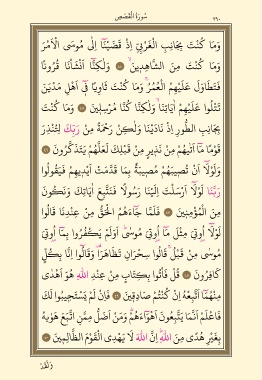 سُورَةُ الْقَصَصِ
٣٩٠
وَمَا كُنْتَ بِجَانِبِ الْغَرْبِيِّ اِذْ قَضَيْنَٓا اِلٰى مُوسَى الْاَمْرَ
وَمَا كُنْتَ مِنَ الشَّاهِدِينَۙ ٤٤ وَلٰكِنَّٓا اَنْشَأْنَا قُرُونًا
فَتَطَاوَلَ عَلَيْهِمُ الْعُمُرُۚ وَمَا كُنْتَ ثَاوِيًا فِٓى اَهْلِ مَدْيَنَ
تَتْلُوا عَلَيْهِمْ اٰيَاتِنَاۙ وَلٰكِنَّا كُنَّا مُرْسِلِينَ ٤٥ وَمَا كُنْتَ
بِجَانِبِ الطُّورِ اِذْ نَادَيْنَا وَلٰكِنْ رَحْمَةً مِنْ رَبِّكَ لِتُنْذِرَ
قَوْمًا مَٓا اَتٰيهُمْ مِنْ نَذِيرٍ مِنْ قَبْلِكَ لَعَلَّهُمْ يَتَذَكَّرُونَ ٤٦
وَلَوْلَٓا اَنْ تُصِيبَهُمْ مُصِيبَةٌ بِمَا قَدَّمَتْ اَيْدِيهِمْ فَيَقُولُوا
رَبَّنَا لَوْلَٓا اَرْسَلْتَ اِلَيْنَا رَسُولًا فَنَتَّبِعَ اٰيَاتِكَ وَنَكُونَ
مِنَ الْمُؤْمِنِينَ ٤٧ فَلَمَّا جَٓاءَهُمُ الْحَقُّ مِنْ عِنْدِنَا قَالُوا
لَوْلَٓا اُو۫تِىَ مِثْلَ مَٓا اُو۫تِىَ مُوسٰىۜ اَوَلَمْ يَكْفُرُوا بِمَٓا اُو۫تِىَ
مُوسٰى مِنْ قَبْلُۚ قَالُوا سِحْرَانِ تَظَاهَرَا۠ وَقَالُٓوا اِنَّا بِكُلٍّ
كَافِرُونَ ٤٨ قُلْ فَأْتُوا بِكِتَابٍ مِنْ عِنْدِ اللّٰهِ هُوَ اَهْدٰى
مِنْهُمَٓا اَتَّبِعْهُ اِنْ كُنْتُمْ صَادِقِينَ ٤٩ فَاِنْ لَمْ يَسْتَجِيبُوا لَكَ
فَاعْلَمْ اَنَّمَا يَتَّبِعُونَ اَهْوَٓاءَهُمْۜ وَمَنْ اَضَلُّ مِمَّنِ اتَّبَعَ هَوٰيهُ
بِغَيْرِ هُدًى مِنَ اللّٰهِۜ اِنَّ اللّٰهَ لَا يَهْدِى الْقَوْمَ الظَّالِمِينَ ٥٠
وَلَقَدْ